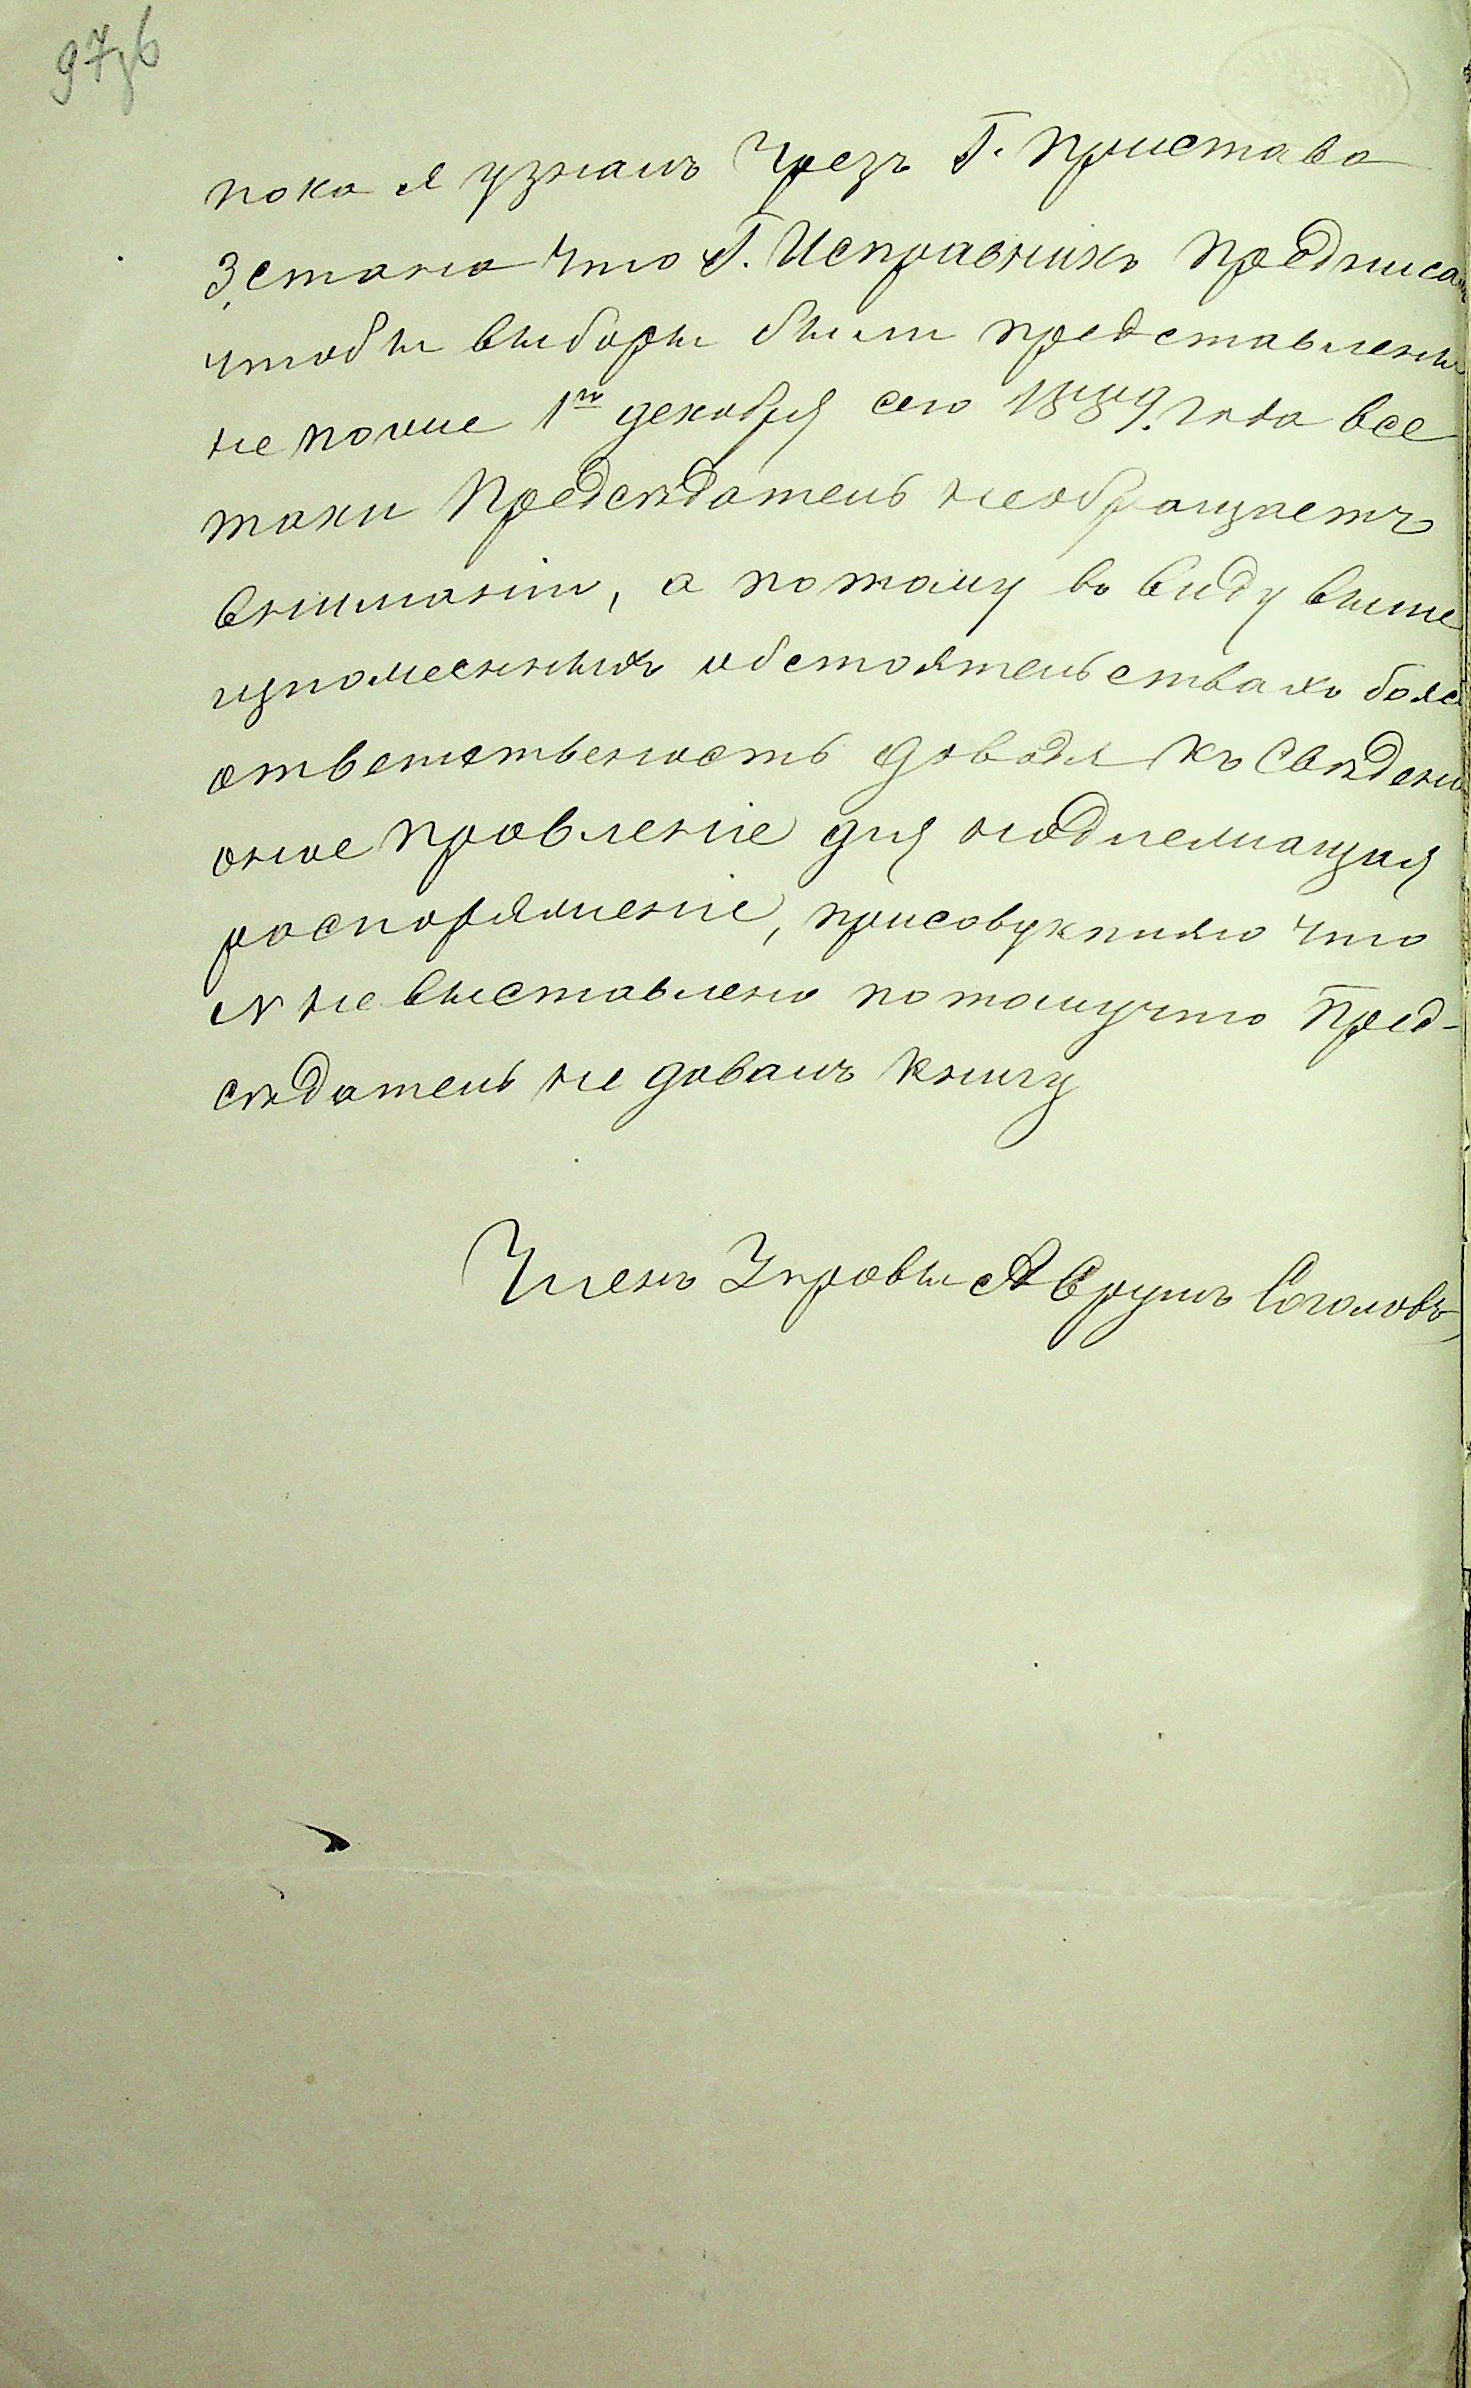 97об
пока я узналъ Чрезъ Г. Пристава
3 стана что Г. Исправникъ Предписал
чтобы выборы были представлены
не позже 1го декабря сего 1889. года все
таки Председатель необращаетъ
внимании, а потому въ виду выше
изномесенныхъ обстоятельствахъ боясь
ответственость доводя къ Сведени
оное правление для надлежащия
распоряжение, присовукпляю что
N не выставлено потомучто Пред-
седатель не давалъ книгу
Членъ Управы Аврумъ Соголовъ